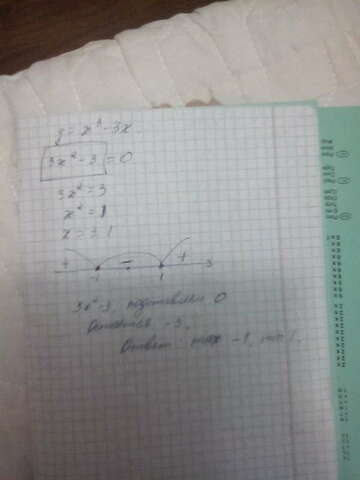 y = x³ - 3x.
3x² - 3 = 0
3x² = 3
x² = 1
x = ± 1
+ - +
-1 1
3x² - 3, подставляем 0
Останется -3.
Ответ: max -1, min 1.